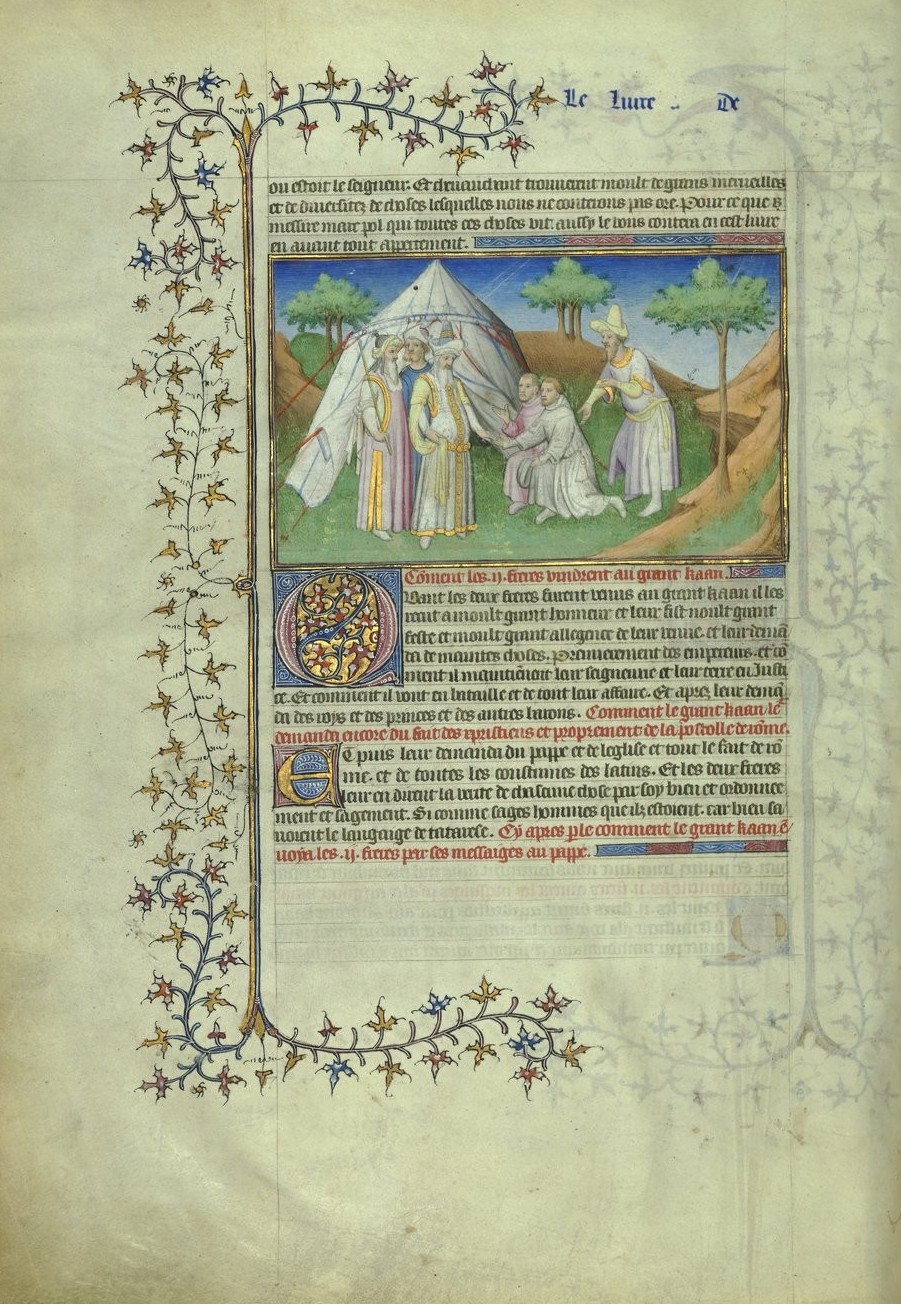 Le liure .. De
ou estoit le seigneur. Et cheuauchant trouuerent moult de grans merueilles
et de diuersitez de choses lesquelles nous ne conterons pas ore. Pour ce que
messire marc pol qui toutes ces choses vit. aussy le vous contera en cest liure
en auant tout appertement.
Cõment les .ij. freres vindrent au grant kaan.
Quant les deux freres furent venus au grant kaan il les
receut a moult grant honneur et leur fist moult grant
feste et moult grant allegrece de leur venue. et leur demã
da de maintes choses. Premierement des empereurs. et cõ
ment il maintienoit leur seigneurie et leur terre en Justi
ce. Et comment il vont en bataille et de tout leur affaire. Et aprez leur demã
da des roys et des princes et des autres barons. Comment le grant kaan le
demanda encore du fait des xpristiens et proprement de la postolle de rõme.
Et puis leur demanda du pappe et de leglise et tout le fait de rõ
me. et de toutes les coustumes des latins. Et les deux freres
leur en dirent la verite de chascune chose par soy bien et ordonnee
ment et sagement. Si comme sages hommes que ilz estoient. car bien sa
uoient le langaige de tatarese. Cy apres ple comment le grant kaan ẽ
uoya les .ij. freres par ses messaiges au pappe.